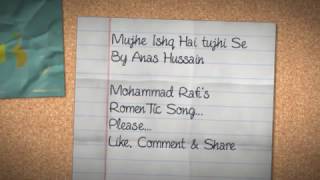 Mujhe Ishq Hai tujhi Se
By Anas Hussain
Mohammad Rafi's
RomenTic Song...
Please...
Like, Comment & Share